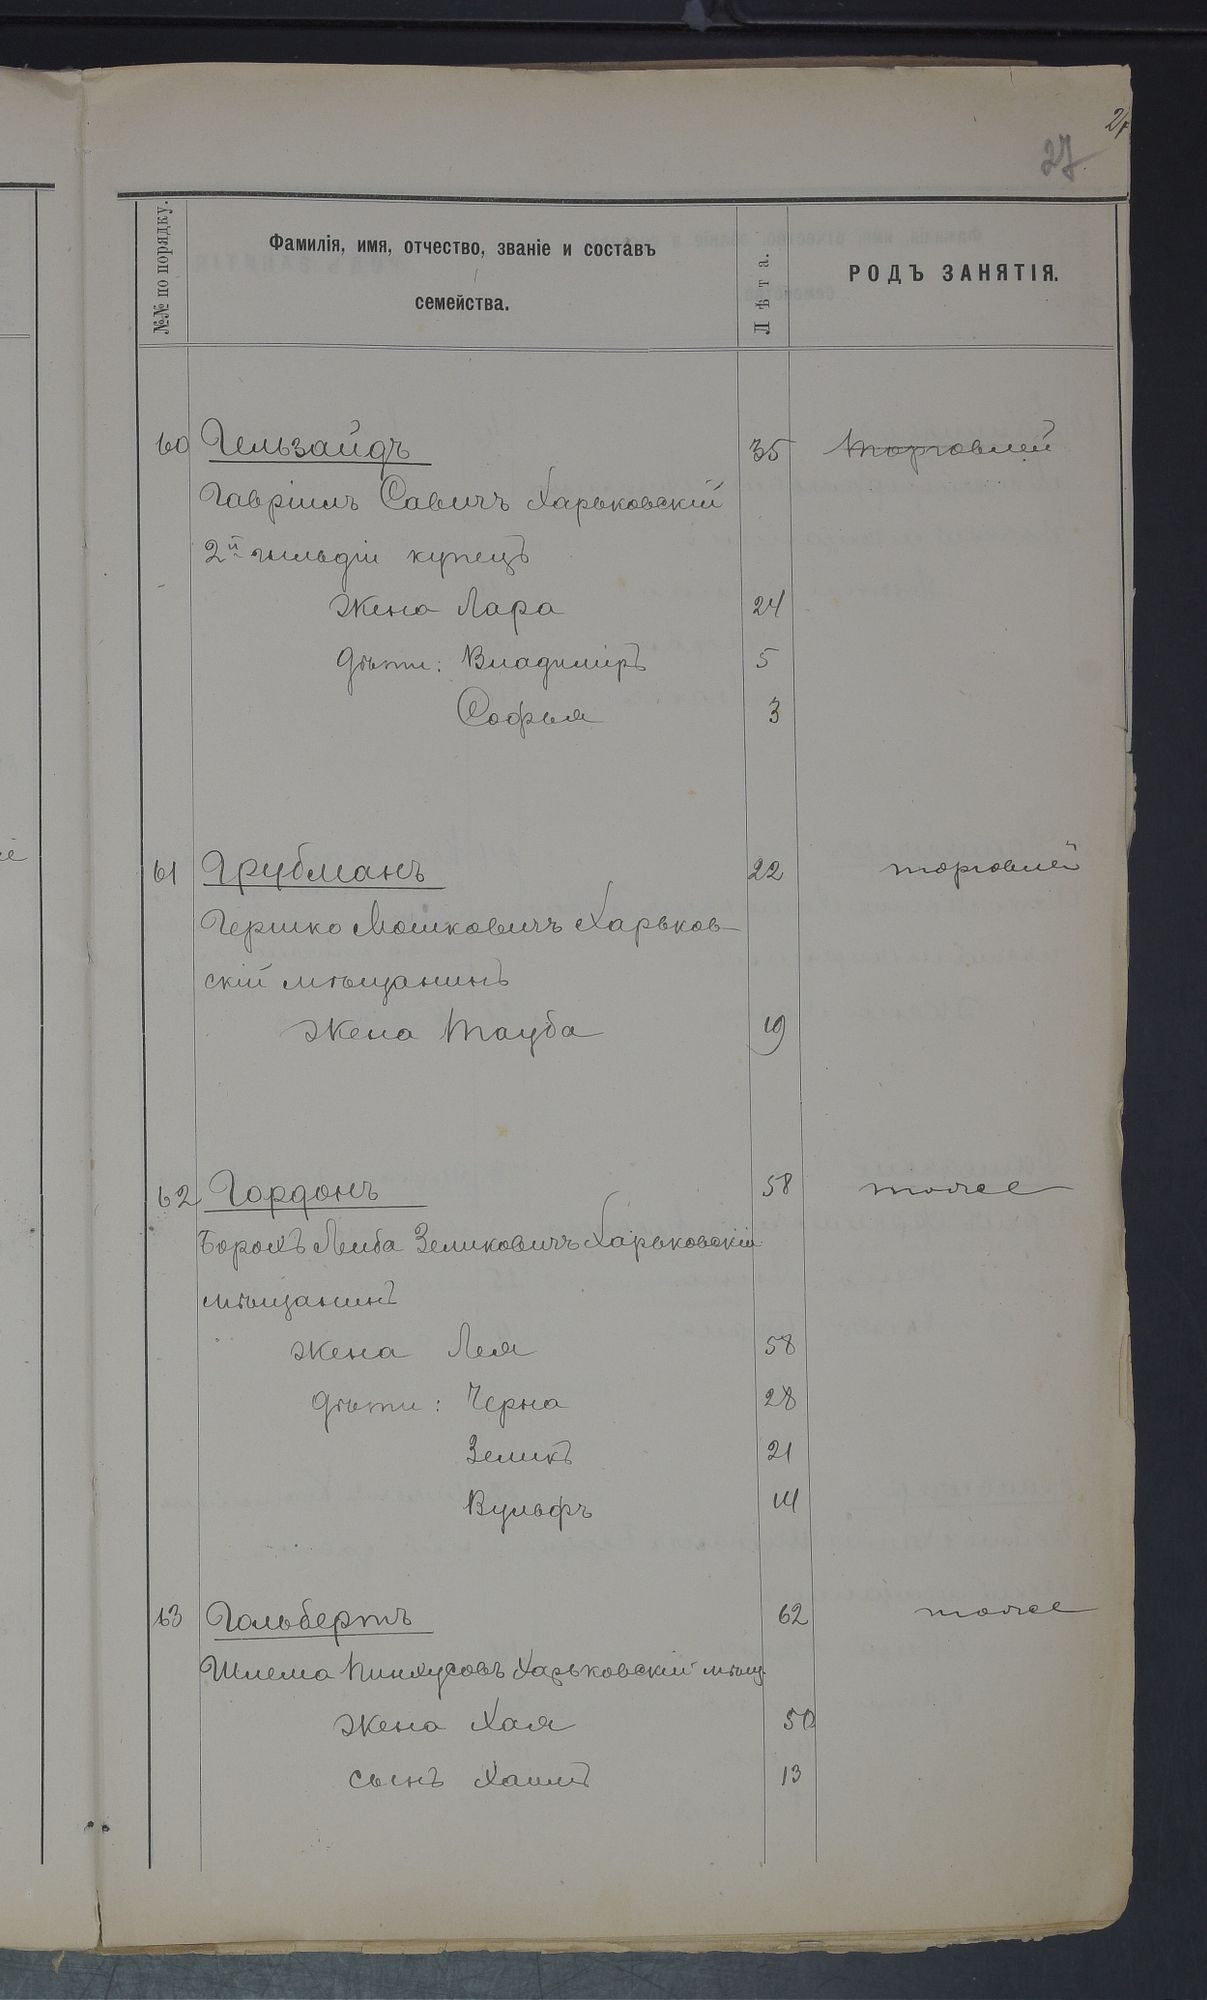 27
№№ по порядку.
Фамилія, имя, отчество, званіе и составъ
семейства.
Лѣта.
РОДЪ ЗАНЯТІЯ.
60 Гельзайдъ 35 торговлей
Гавріилъ Савичъ Харьковскій
2й гильдіи купецъ
Жена Лара 24
дѣти: Владиміръ 5
Софья 3
61 Грубманъ 22 торговлей
Гершко Мошковичъ Харьков-
скій мѣщанинъ
Жена Тауба 19
62 Гордонъ 58 тоже
Борохъ Лейба Зеликовичъ Харьковскій
мѣщанинъ
жена Лея 58
дѣти: Черна 28
Зеликъ 21
Вульфъ 14
63 Гольбертъ 62 тоже
Шлема Пинхусовъ Харьковскій мѣщ.
Жена Хая 50
сынъ Хаимъ 13